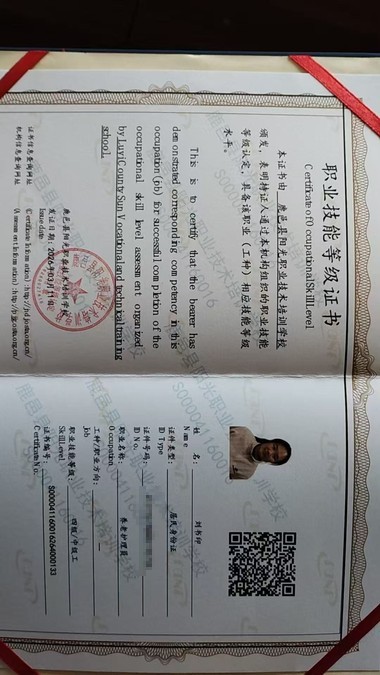 职业技能等级证书
Certificate of Occupational Skill Level
本证书由 鹿邑县阳光职业技术培训学校
颁发，表明持证人通过本机构组织的职业技能
等级认定，具备该职业（工种）相应技能等级
水平。
This is to certify that the bearer has
demonstrated corresponding competency in this
occupation (job) for successful completion of the
occupational skill level assessment organized
by Luyi County Sun Vocational and technical training
school.
鹿邑县阳光职业技术培训学校
发证日期：2026年03月11日
Issue date
证书信息查询网址
Certificate Information
机构信息查询网址
Assessment Information
姓 名： 刘书印
Name
证件类型： 居民身份证
ID Type
证件号码：
ID No.
职业名称： 养老护理员
Occupation
工种/职业方向：
Job
职业技能等级： 四级/中级工
Skill Level
证书编号： S000041160016264000133
Certificate No.